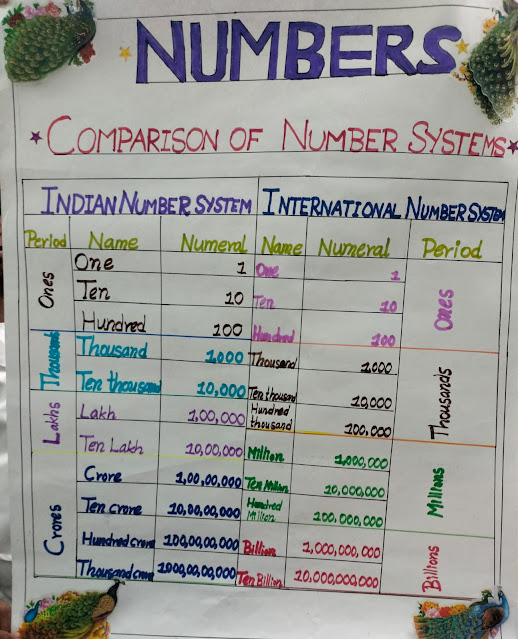 NUMBERS
COMPARISON OF NUMBER SYSTEMS
INDIAN NUMBER SYSTEM INTERNATIONAL NUMBER SYSTEM
Period Name Numeral Name Numeral Period
Ones One 1 One 1 Ones
Ten 10 Ten 10
Hundred 100 Hundred 100
Thousands Thousand 1,000 Thousand 1,000 Thousands
Ten thousand 10,000 Ten thousand 10,000
Lakhs Lakh 1,00,000 Hundred thousand 100,000
Ten Lakh 10,00,000 Million 1,000,000 Millions
Crores Crore 1,00,00,000 Ten Million 10,000,000
Ten crore 10,00,00,000 Hundred Million 100,000,000
Hundred crore 100,00,00,000 Billion 1,000,000,000 Billions
Thousand crore 1000,00,00,000 Ten Billion 10,000,000,000